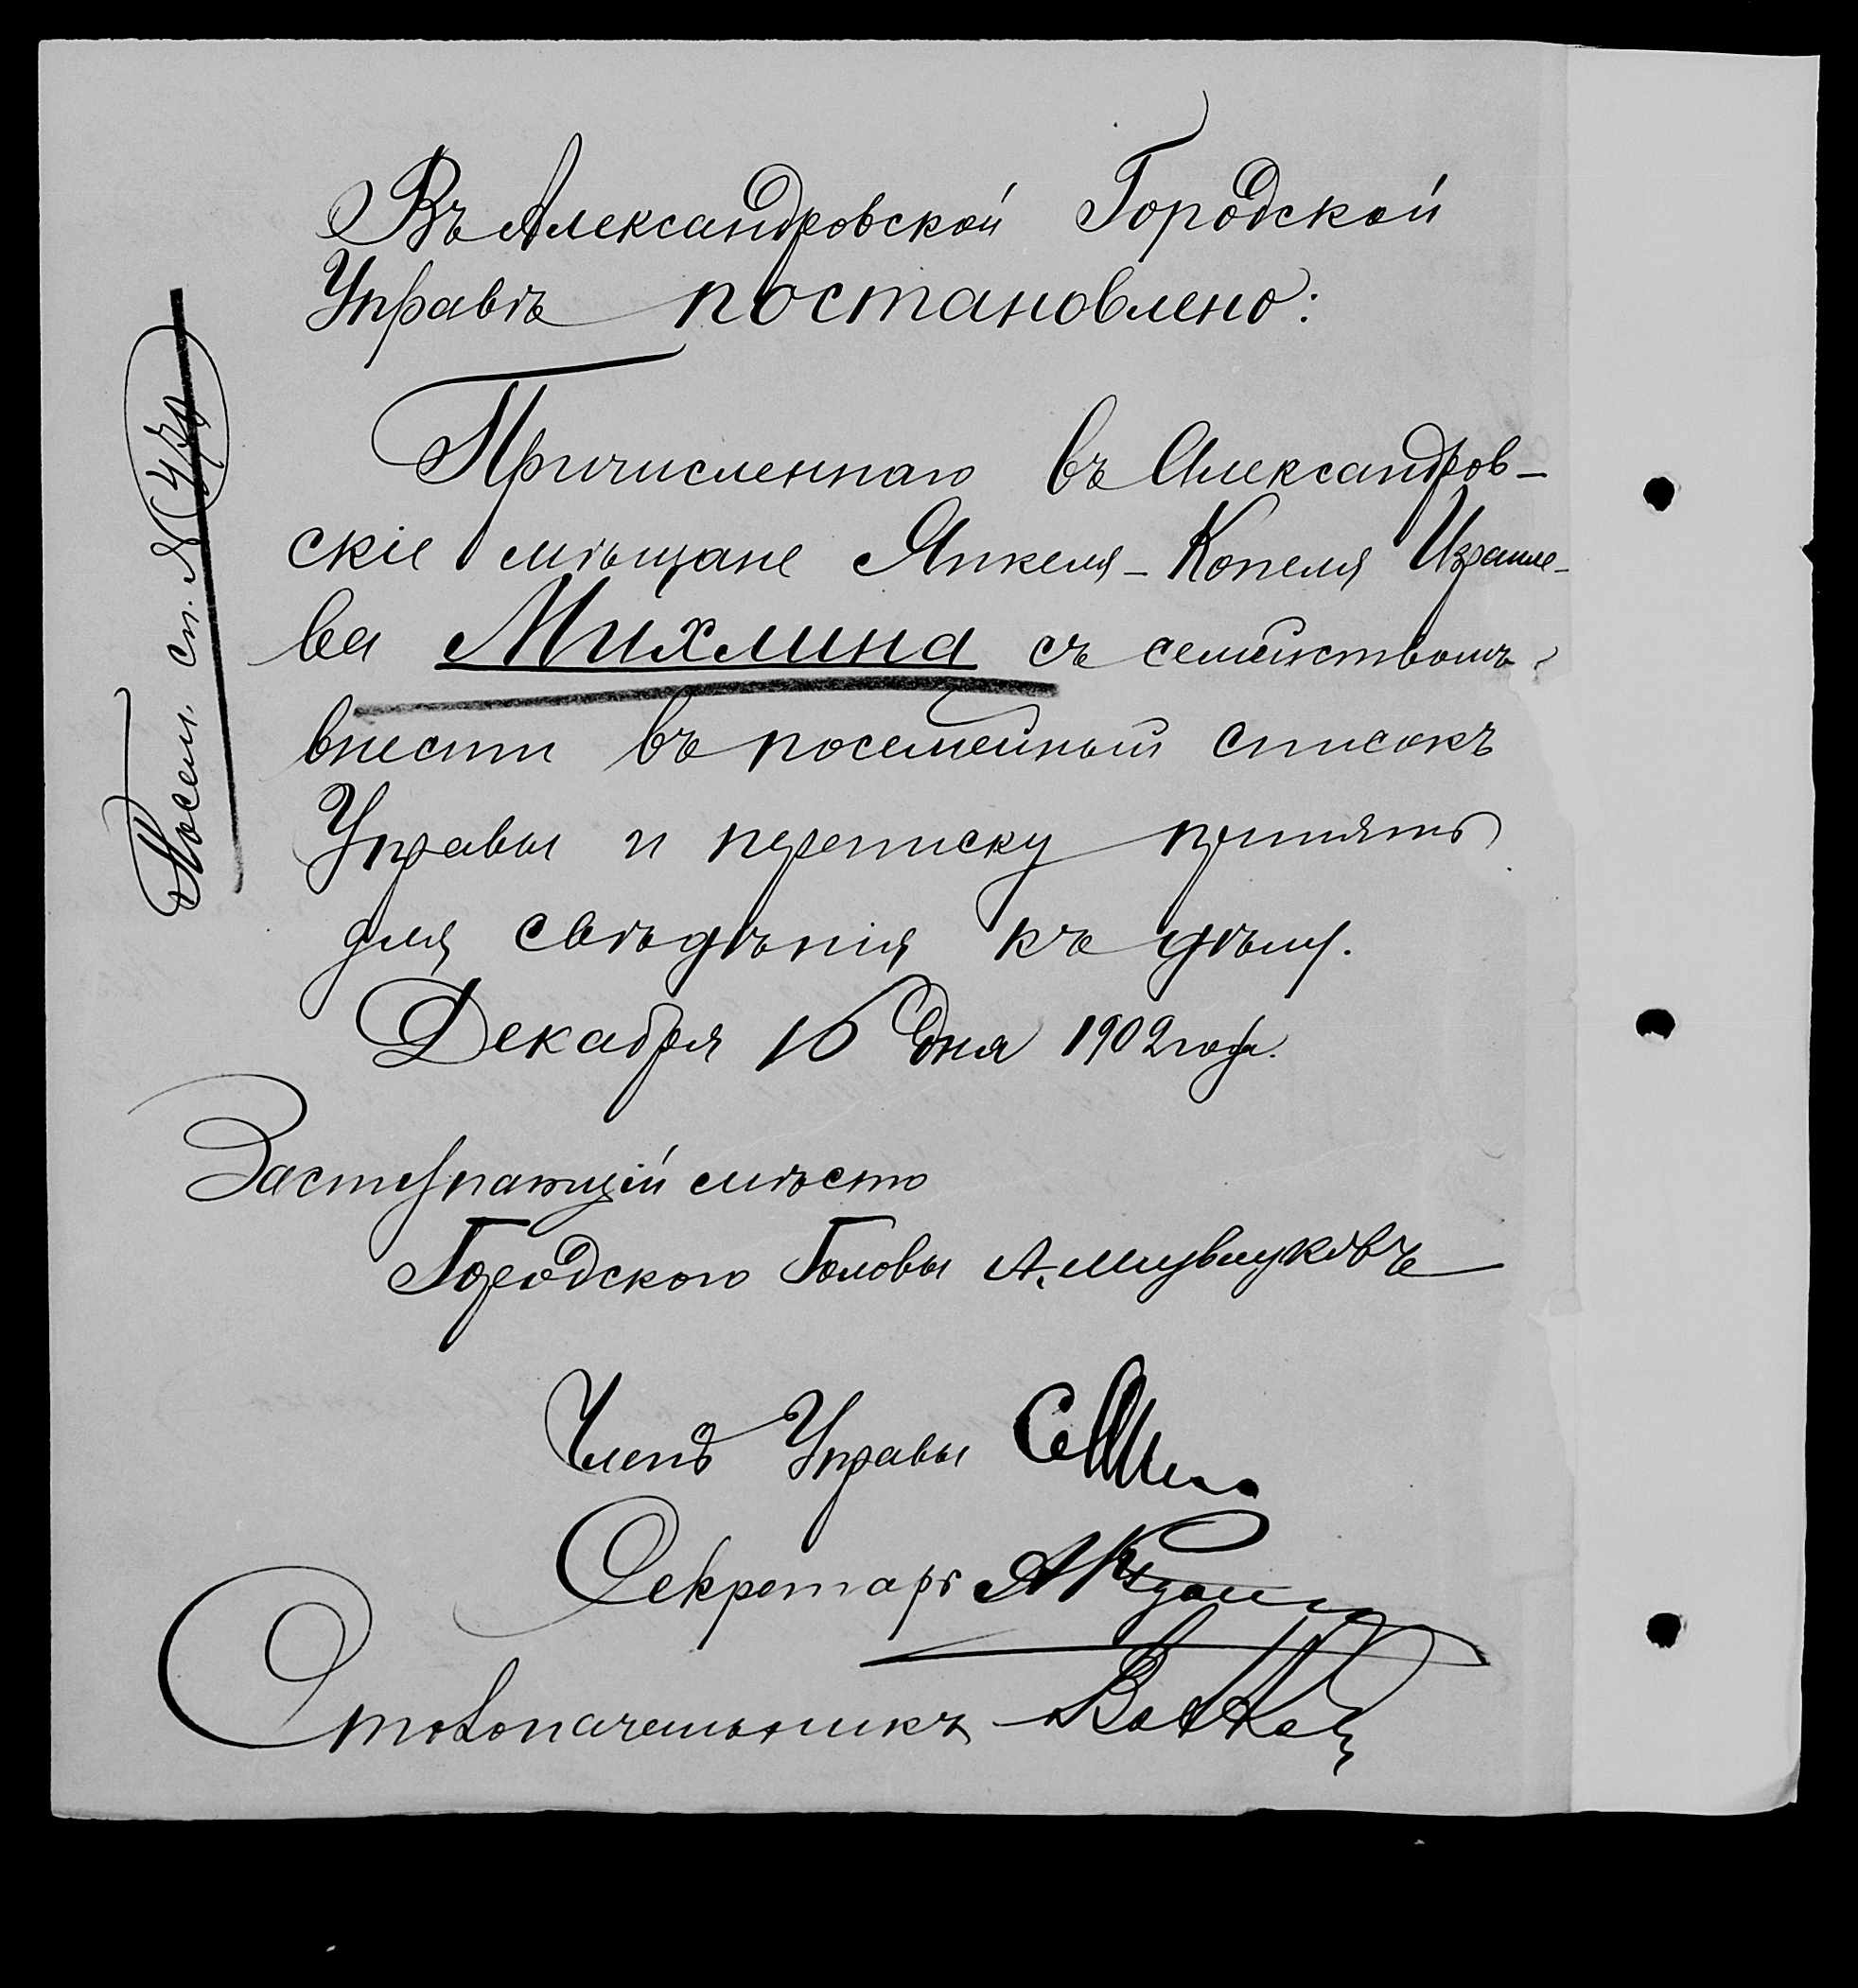 Въ Александровской Городской
Управѣ постановлено:
Причисленнаго въ Александров-
скіе мѣщане Янкеля-Копеля Израиле-
ва Михлина съ семействомъ
внести въ посемейный списокъ
Управы и переписку принять
для свѣдѣнія къ дѣлу.
Декабря 16 дня 1902 года.
Заступающій мѣсто
Городского Головы А.
Членъ Управы
Секретарь
Столоначальникъ
Посем. сп. №